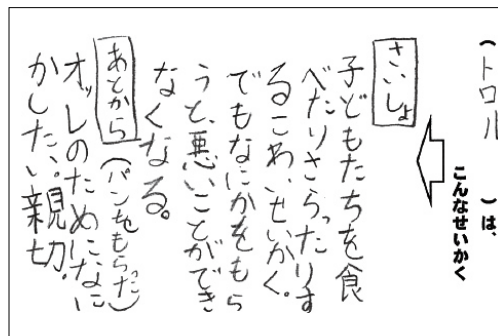 （トロル　）は、
こんなせいかく
さいしょ
子どもたちを食
べたりさらったりす
るこわいせいかく。
でもなにかをもら
うと、悪いことができ
なくなる。
あとから（パンをもらった）
オッレのためになに
かしたい。親切。